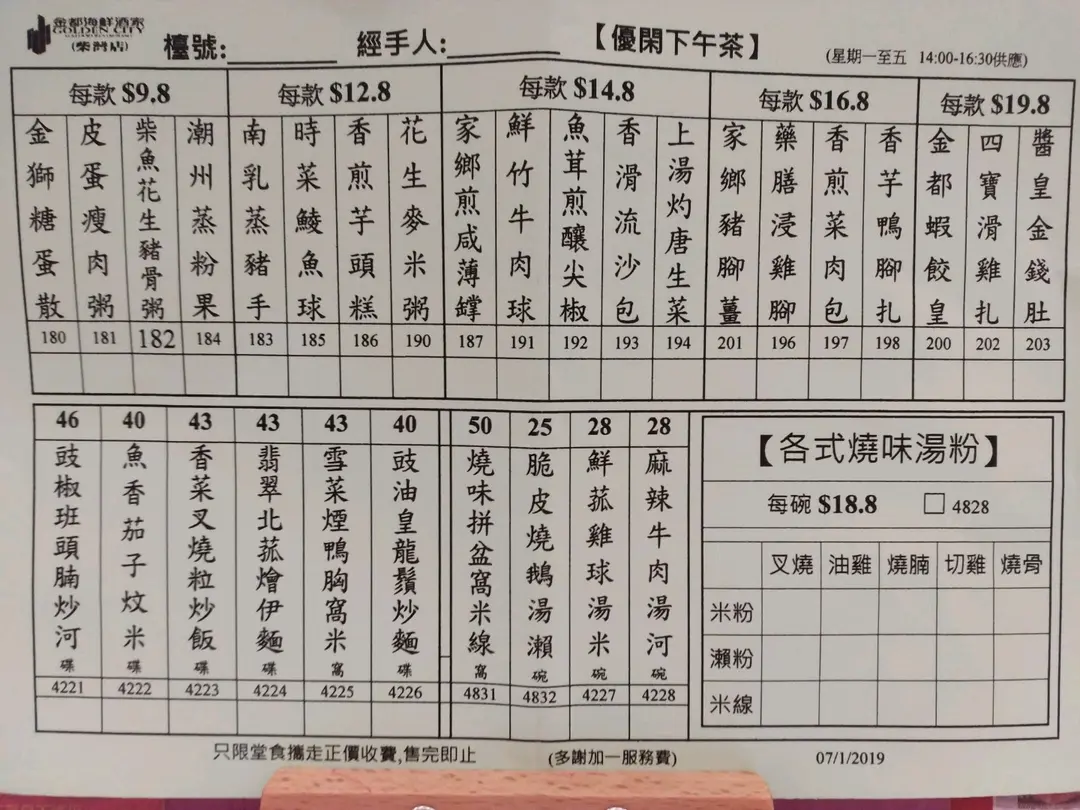 金都海鮮酒家
GOLDEN CITY
(柴灣店)
檯號:
經手人:
【優閑下午茶】
(星期一至五 14:00-16:30供應)
每款 $9.8
金獅糖蛋散
180
皮蛋瘦肉粥
181
柴魚花生豬骨粥
182
潮州蒸粉果
184
每款 $12.8
南乳蒸豬手
183
時菜鯪魚球
185
香煎芋頭糕
186
花生麥米粥
190
每款 $14.8
家鄉煎咸薄罉
187
鮮竹牛肉球
191
魚茸煎釀尖椒
192
香滑流沙包
193
上湯灼唐生菜
194
每款 $16.8
家鄉豬腳薑
201
藥膳浸雞腳
196
香煎菜肉包
197
香芋鴨腳扎
198
每款 $19.8
金都蝦餃皇
200
四寶滑雞扎
202
醬皇金錢肚
203
46
豉椒班頭腩炒河
碟
4221
40
魚香茄子炆米
碟
4222
43
香菜叉燒粒炒飯
碟
4223
43
翡翠北菰燴伊麵
碟
4224
43
雪菜煙鴨胸窩米
窩
4225
40
豉油皇龍鬚炒麵
碟
4226
50
燒味拼盆窩米線
窩
4831
25
脆皮燒鵝湯瀨
碗
4832
28
鮮菰雞球湯米
碗
4227
28
麻辣牛肉湯河
碗
4228
【各式燒味湯粉】
每碗 $18.8 □ 4828
叉燒 油雞 燒腩 切雞 燒骨
米粉
瀨粉
米線
只限堂食攜走正價收費,售完即止
(多謝加一服務費)
07/1/2019